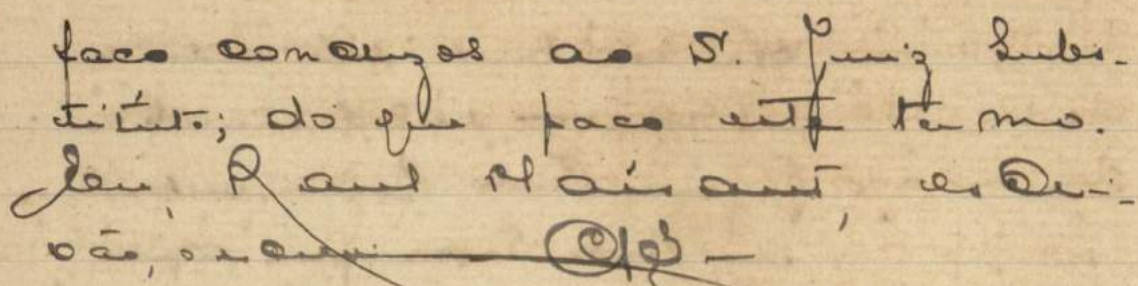 faco conclusos ao S. Juiz Subs-
tituto; do que faco este termo.
Eu, Raul Plaisant, escri-
vão, o escrevi. Clsº -